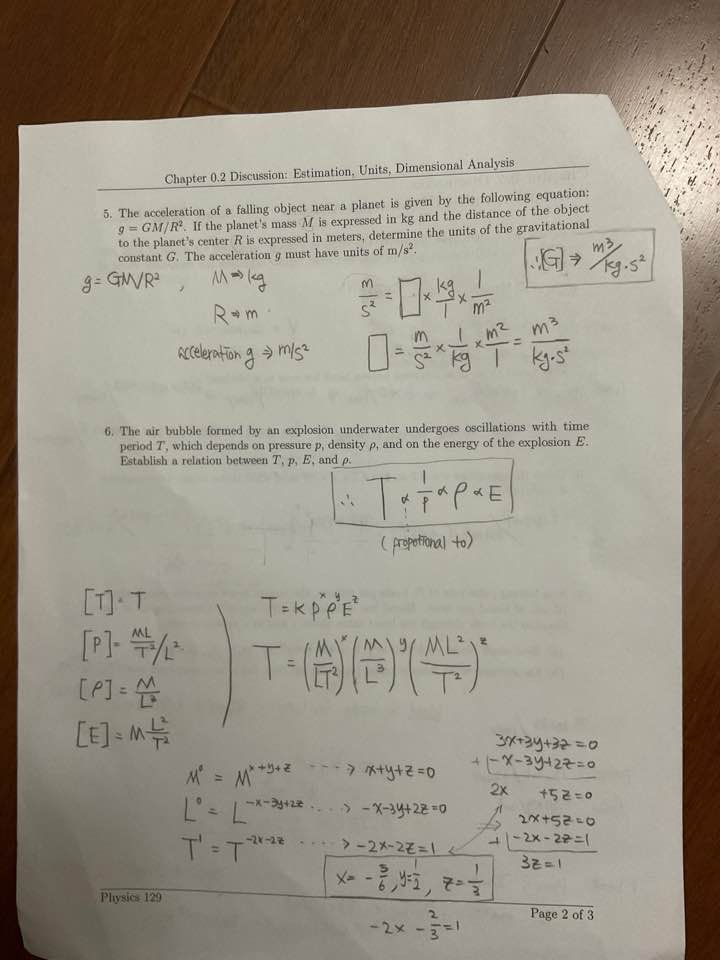 Chapter 0.2 Discussion: Estimation, Units, Dimensional Analysis
5. The acceleration of a falling object near a planet is given by the following equation:
g = GM/R². If the planet's mass M is expressed in kg and the distance of the object
to the planet's center R is expressed in meters, determine the units of the gravitational
constant G. The acceleration g must have units of m/s².
∴ [G] ⇒ m³/kg·s²
g = GM/R² , M ⇒ kg
R ⇒ m
acceleration g ⇒ m/s²
m/s² = □ × kg/1 × 1/m²
□ = m/s² × 1/kg × m²/1 = m³/kg·s²
6. The air bubble formed by an explosion underwater undergoes oscillations with time
period T, which depends on pressure p, density ρ, and on the energy of the explosion E.
Establish a relation between T, p, E, and ρ.
∴ T ∝ 1/p ∝ ρ ∝ E
(propotional to)
[T] = T
[P] = ML/T² / L²
[ρ] = M/L³
[E] = M L²/T²
T = k p^x ρ^y E^z
T = (M/LT²)^x (M/L³)^y (ML²/T²)^z
M⁰ = M^x+y+z ····> x+y+z=0
L⁰ = L^-x-3y+2z ····> -x-3y+2z=0
T¹ = T^-2x-2z ····> -2x-2z=1
3x+3y+3z=0
+ -x-3y+2z=0
2x +5z=0
⇒ 2x+5z=0
+ -2x-2z=1
3z=1
x= -5/6, y=1/2, z=1/3
-2x - 2/3 =1
Physics 129
Page 2 of 3